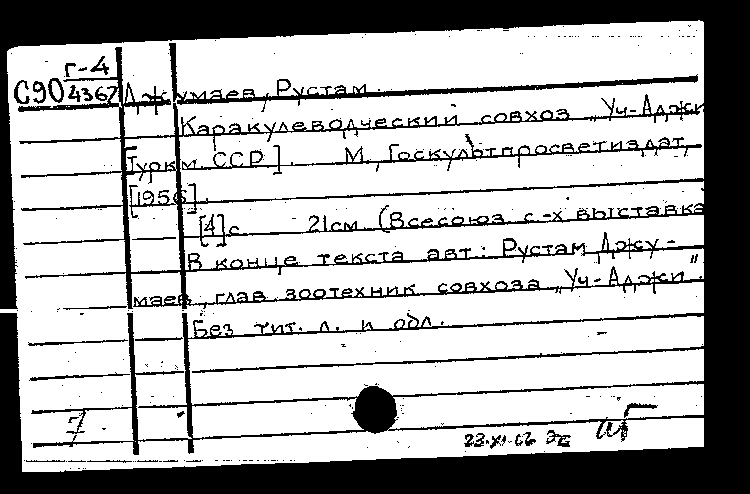 Г-4
С90 4367 Джумаев, Рустам.
Каракулеводческий совхоз „Уч-Аджи
[Туркм. ССР]. М., Госкультпросветиздат,
[1956].
[4]с. 21см. (Всесоюз. с-х выставка
В конце текста авт.: Рустам Джу-
маев, глав. зоотехник совхоза „Уч-Аджи".
Без тит. л. и обл.
7
23.XI.62